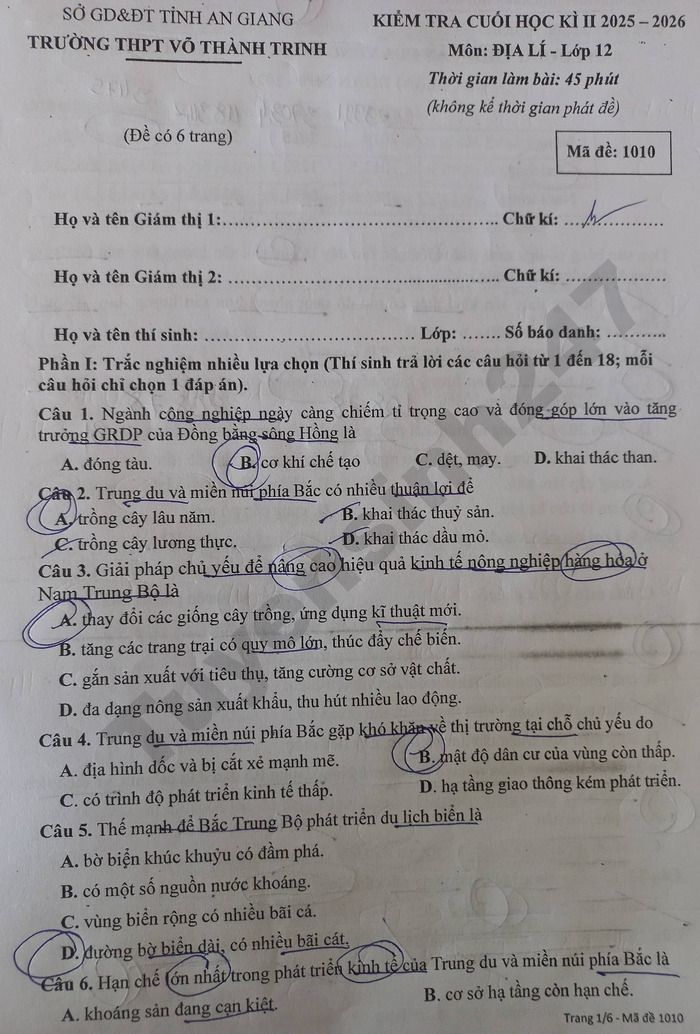 SỞ GD&ĐT TỈNH AN GIANG
TRƯỜNG THPT VÕ THÀNH TRINH
(Đề có 6 trang)
KIỂM TRA CUỐI HỌC KÌ II 2025 – 2026
Môn: ĐỊA LÍ - Lớp 12
Thời gian làm bài: 45 phút
(không kể thời gian phát đề)
Mã đề: 1010
Họ và tên Giám thị 1:.................................................. Chữ kí: ..................
Họ và tên Giám thị 2: .................................................. Chữ kí: ..................
Họ và tên thí sinh: ........................................ Lớp: ....... Số báo danh: ...........
Phần I: Trắc nghiệm nhiều lựa chọn (Thí sinh trả lời các câu hỏi từ 1 đến 18; mỗi
câu hỏi chỉ chọn 1 đáp án).
Câu 1. Ngành công nghiệp ngày càng chiếm tỉ trọng cao và đóng góp lớn vào tăng
trưởng GRDP của Đồng bằng sông Hồng là
A. đóng tàu. B. cơ khí chế tạo C. dệt, may. D. khai thác than.
Câu 2. Trung du và miền núi phía Bắc có nhiều thuận lợi để
A. trồng cây lâu năm. B. khai thác thuỷ sản.
C. trồng cây lương thực. D. khai thác dầu mỏ.
Câu 3. Giải pháp chủ yếu để nâng cao hiệu quả kinh tế nông nghiệp hàng hóa ở
Nam Trung Bộ là
A. thay đổi các giống cây trồng, ứng dụng kĩ thuật mới.
B. tăng các trang trại có quy mô lớn, thúc đẩy chế biến.
C. gắn sản xuất với tiêu thụ, tăng cường cơ sở vật chất.
D. đa dạng nông sản xuất khẩu, thu hút nhiều lao động.
Câu 4. Trung du và miền núi phía Bắc gặp khó khăn về thị trường tại chỗ chủ yếu do
A. địa hình dốc và bị cắt xẻ mạnh mẽ. B. mật độ dân cư của vùng còn thấp.
C. có trình độ phát triển kinh tế thấp. D. hạ tầng giao thông kém phát triển.
Câu 5. Thế mạnh để Bắc Trung Bộ phát triển du lịch biển là
A. bờ biển khúc khuỷu có đầm phá.
B. có một số nguồn nước khoáng.
C. vùng biển rộng có nhiều bãi cá.
D. đường bờ biển dài, có nhiều bãi cát.
Câu 6. Hạn chế lớn nhất trong phát triển kinh tế của Trung du và miền núi phía Bắc là
A. khoáng sản đang cạn kiệt. B. cơ sở hạ tầng còn hạn chế.
Trang 1/6 - Mã đề 1010
tuyensinh247